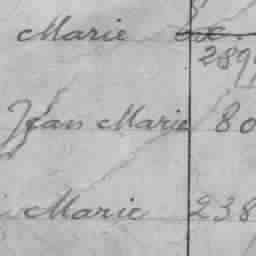 Marie
289
Jean Marie 80
Marie 238